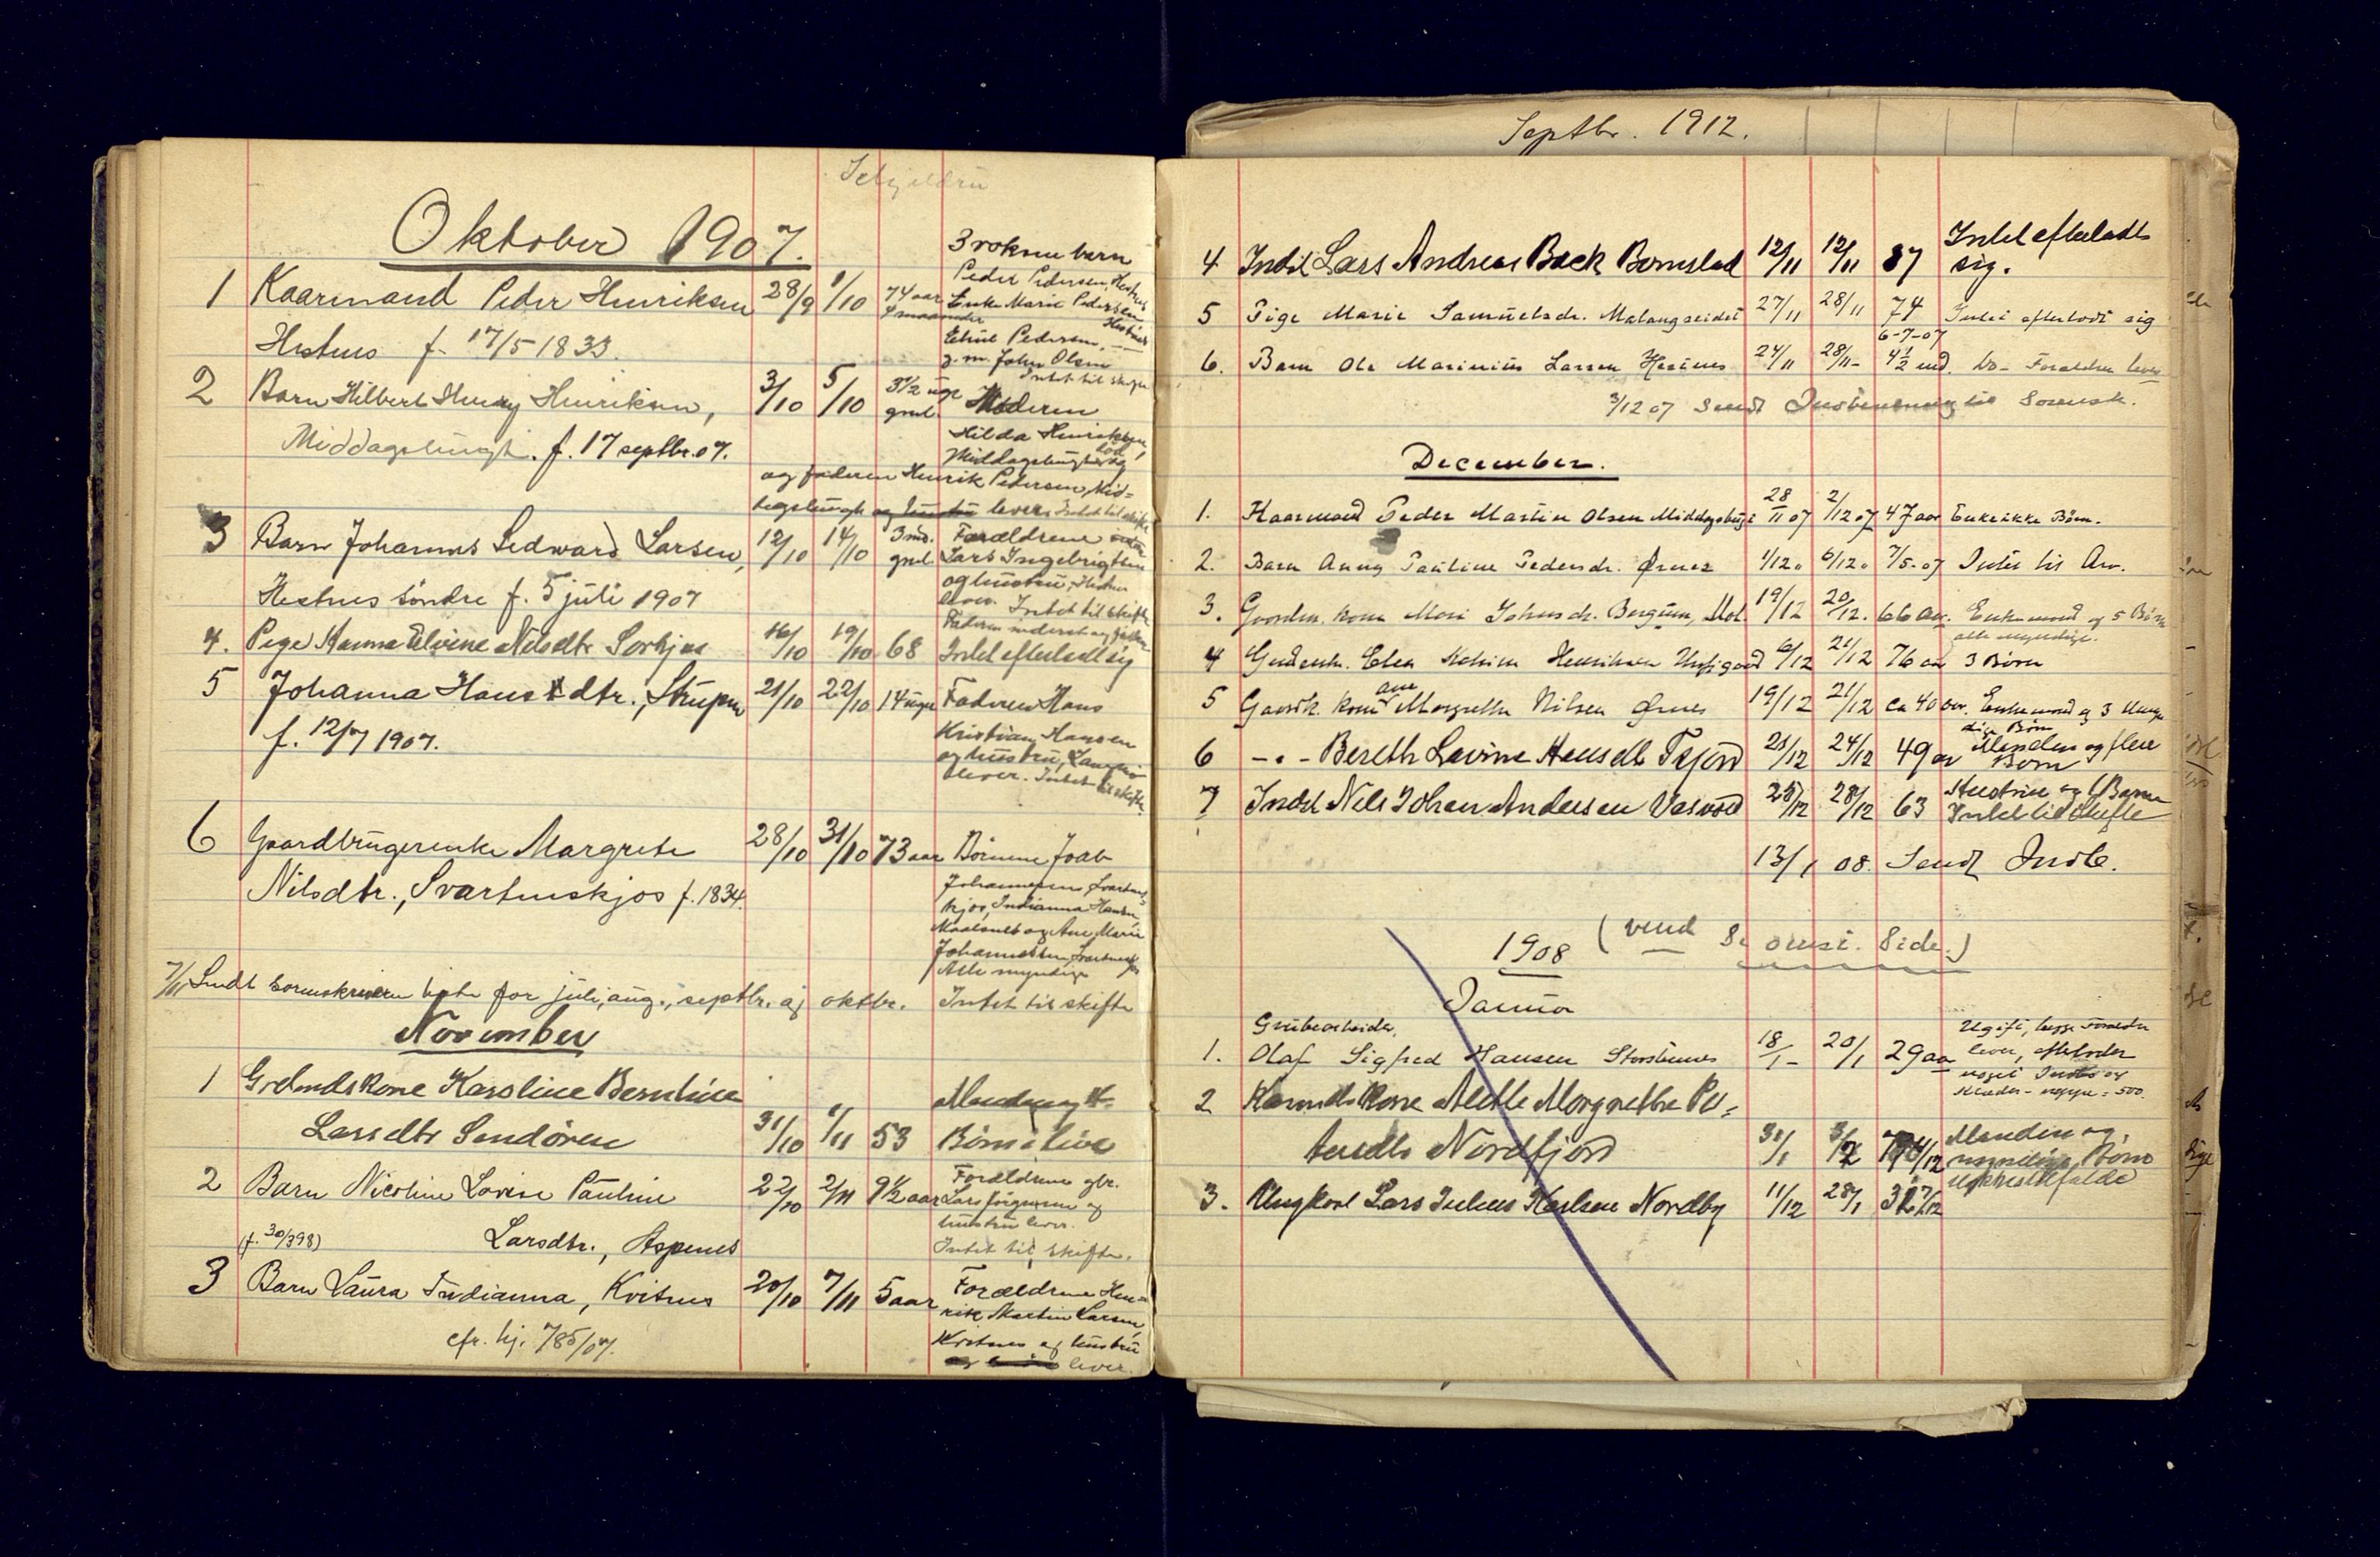 Oktober 1907.
3 voksne barn
1 Kaarmand Peder Henriksen 28/9 1/10 74 aar Peder Pedersen, Hestnes
4 maaneder Enke Marie Pedersen
Hestnes f. 17/5 1833. Hestnes
Pedersen, ——
g. m. John Olsen
Intet til skifte
2 Barn Hilbert Henry Henriksen, 3/10 5/10 3 1/2 uge Moderen
gml. Hilda Henriksen,
Middagsbugt. f. 17 septbr. 07. Middagsbugt
og faderen Henrik Pedersen, Mid=
dagsbugt og hustru lever. Intet til skifte
3 Barn Johannes Sedward Larsen, 12/10 14/10 3 md. Forældrene
gml. Lars Ingebrigtsen
Hestnes søndre f. 5 juli 1907 og hustru, Hestnes
lever. Intet til skifte
4. Pige Hanna Elvine Nilsdtr. Sørkjos 16/10 19/10 68 Intet efterladt sig
5 Johanna Hansdtr., Strupen 21/10 22/10 14 uger Faderen Hans
f. 12/7 1907. Kristian Hansen
og hustru,
lever. Intet til skifte
6 Gaardbrugerenke Margrete 28/10 31/10 73 aar Børnene Joab
Nilsdtr., Svartneskjos f. 1834. Johannesen, Svartnes
kjos, Indianna Hansen,
og Ane Marie
Johannesen, Svartneskjos
Alle myndige
7/11 Sendt Sorenskriveren liste for juli, aug., septbr. og oktbr. Intet til skifte
November
1 Grdmdskone Karoline Bernhine Manden og
Larsdtr Sandøren 31/10 1/11 53 Børn i live
2 Barn Nicoline Lovise Pauline 22/10 2/11 9 1/2 aar Forældrene gbr.
Lars Jørgensen og
hustru lever.
(f. 30/3 98) Larsdtr., Aspenes Intet til skifte.
3 Barn Laura Indianna, Kvitnes 20/10 7/11 5 aar Forældrene Hen=
rik Martin Larsen,
cfr. kj. 785/07. Kvitnes og hustru
lever.
Septbr. 1912.
4 Inds Lars Andreas Back Bomstad 12/11 12/11 87 Intet efterladt
sig.
5 Pige Marie Samuelsdr. Malangseidet 27/11 28/11 74 Intet efterladt sig
6-7-07
6. Barn Ole Marinius Larsen Hesnes 24/11 28/11- 4 1/2 md. do- Forældre lever
3/12 07 Sendt Indberetning til Sorensk.
December.
1. Kaarmand Peder Martin Olsen Middagsbugt 28/11 07 2/12 07 47 aar Enke ikke Børn.
2. Barn Anna Pauline Pedersdr. Ørnes 1/12. 6/12. 7/5-07 Intet til Arv.
3. Gaardm. kone Mari Johnsdr. Bergum, Mal. 19/12 20/12. 66 aar. Enkemand og 5 Børn
alle myndige.
4 Elen Katrine Henriksen 6/12 21/12 76 aar 3 Børn
5 Gaardk. kone Ane Margrethe Nilsen Ørnes 19/12 21/12 ca 40 aar. Enkemand og 3 Umyn
dige Børn
6 -"- Bereth Lovine Hansdtr Fjord 21/12 24/12 49 aar Manden og flere
Børn
7 Indst Nils Johan Andersen Vasvad 25/12 28/12 63 Hustrue og 1 Barn
Intet til Skifte
13/1 08. Sendt Indb.
1908 (vend Side.)
Januar
1. Grubearbeider, Ugift, begge Forældre
Olaf Sigfred Hansen Storstennes 18/1- 20/1 29 aar lever, efterlader
noget Indbo og
Klæder - neppe = 500.
2 Karmdskone Aletle Margrethe Pe=
dersdtr Nordfjord 31/1 3/2 Manden og
myndige Børn
3. Ungkarl Lars Julius Karlsen Nordby 11/12 28/1 32 7/12